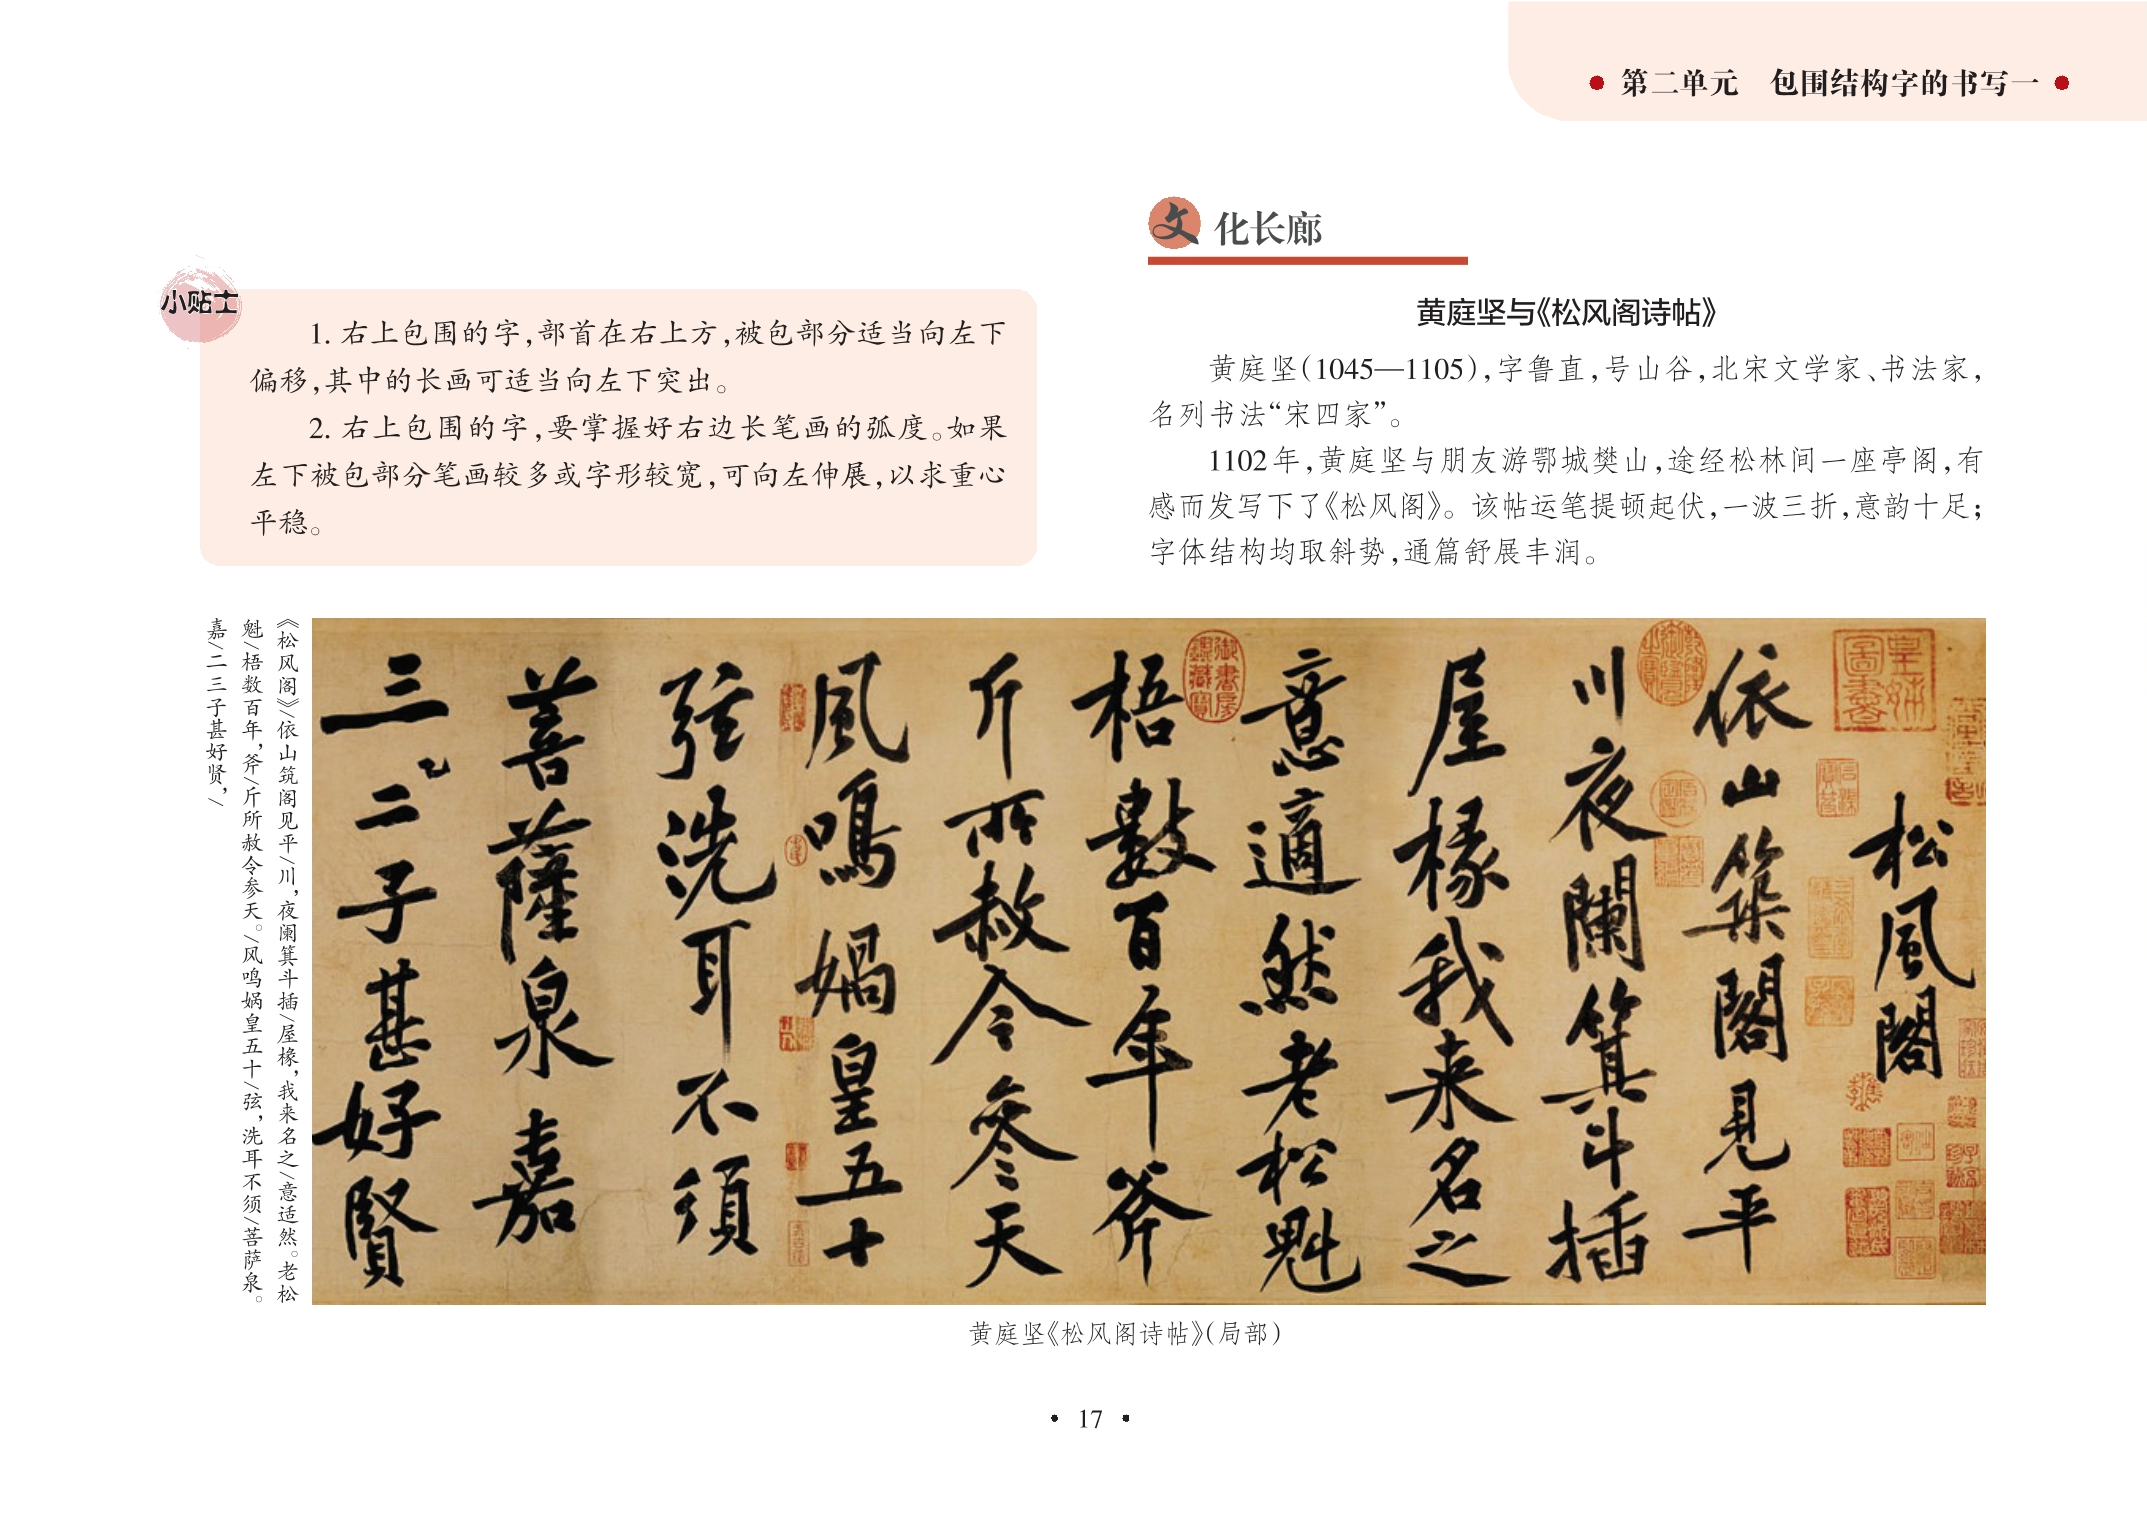 第二单元 包围结构字的书写一
小贴士
1. 右上包围的字,部首在右上方,被包部分适当向左下
偏移,其中的长画可适当向左下突出。
2. 右上包围的字,要掌握好右边长笔画的弧度。如果
左下被包部分笔画较多或字形较宽,可向左伸展,以求重心
平稳。
文化长廊
黄庭坚与《松风阁诗帖》
黄庭坚(1045—1105),字鲁直,号山谷,北宋文学家、书法家,
名列书法“宋四家”。
1102年,黄庭坚与朋友游鄂城樊山,途经松林间一座亭阁,有
感而发写下了《松风阁》。该帖运笔提顿起伏,一波三折,意韵十足;
字体结构均取斜势,通篇舒展丰润。
松風閣
依山築閣見平
川夜闌箕斗插
屋椽我来名之
意適然老松魁
梧數百年斧
斤所赦令参天
風鳴媧皇五十
弦洗耳不須
菩薩泉嘉
三二子甚好賢
《松风阁》/依山筑阁见平/川,夜阑箕斗插/屋椽,我来名之/意适然。老松
魁/梧数百年,斧/斤所赦令参天。/风鸣娲皇五十/弦,洗耳不须/菩萨泉。
嘉/二三子甚好贤,/
黄庭坚《松风阁诗帖》(局部)
• 17 •